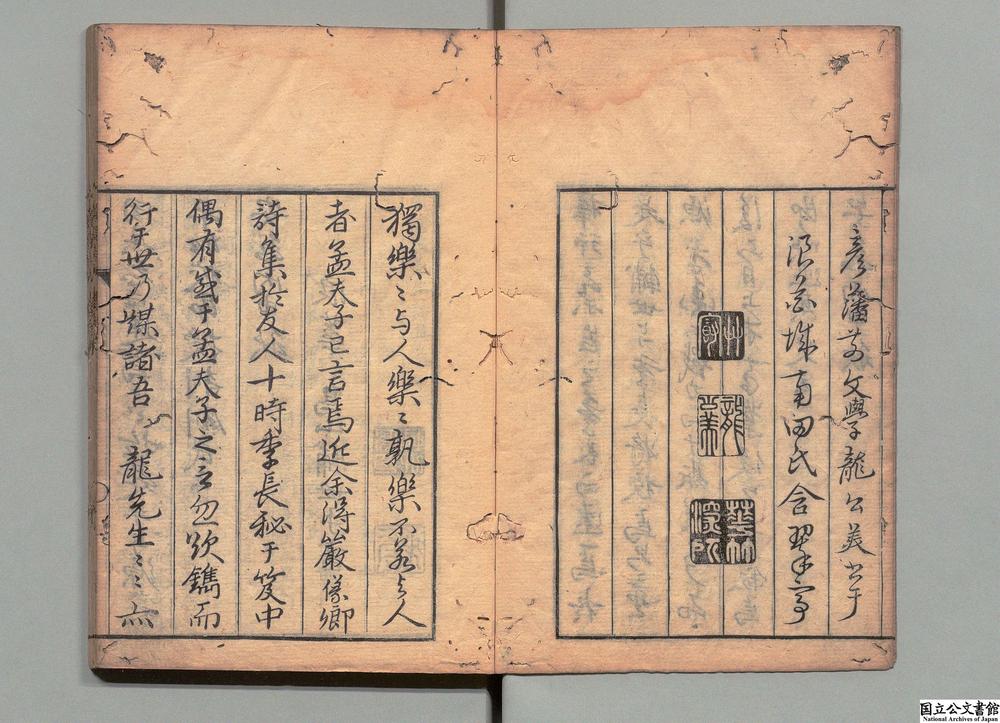 彦藩前文學龍公美書于
浪花城南田氏含翠亭
艸廬
龍公美
獨樂〻与人樂〻孰樂不若与人
者孟夫子已言焉近余得嚴儀卿
詩集於友人十時季長秘于笈中
偶有感于孟夫子之言忽欲鐫而
行于世乃媒諸吾 龍先生〻〻亦
国立公文書館
National Archives of Japan